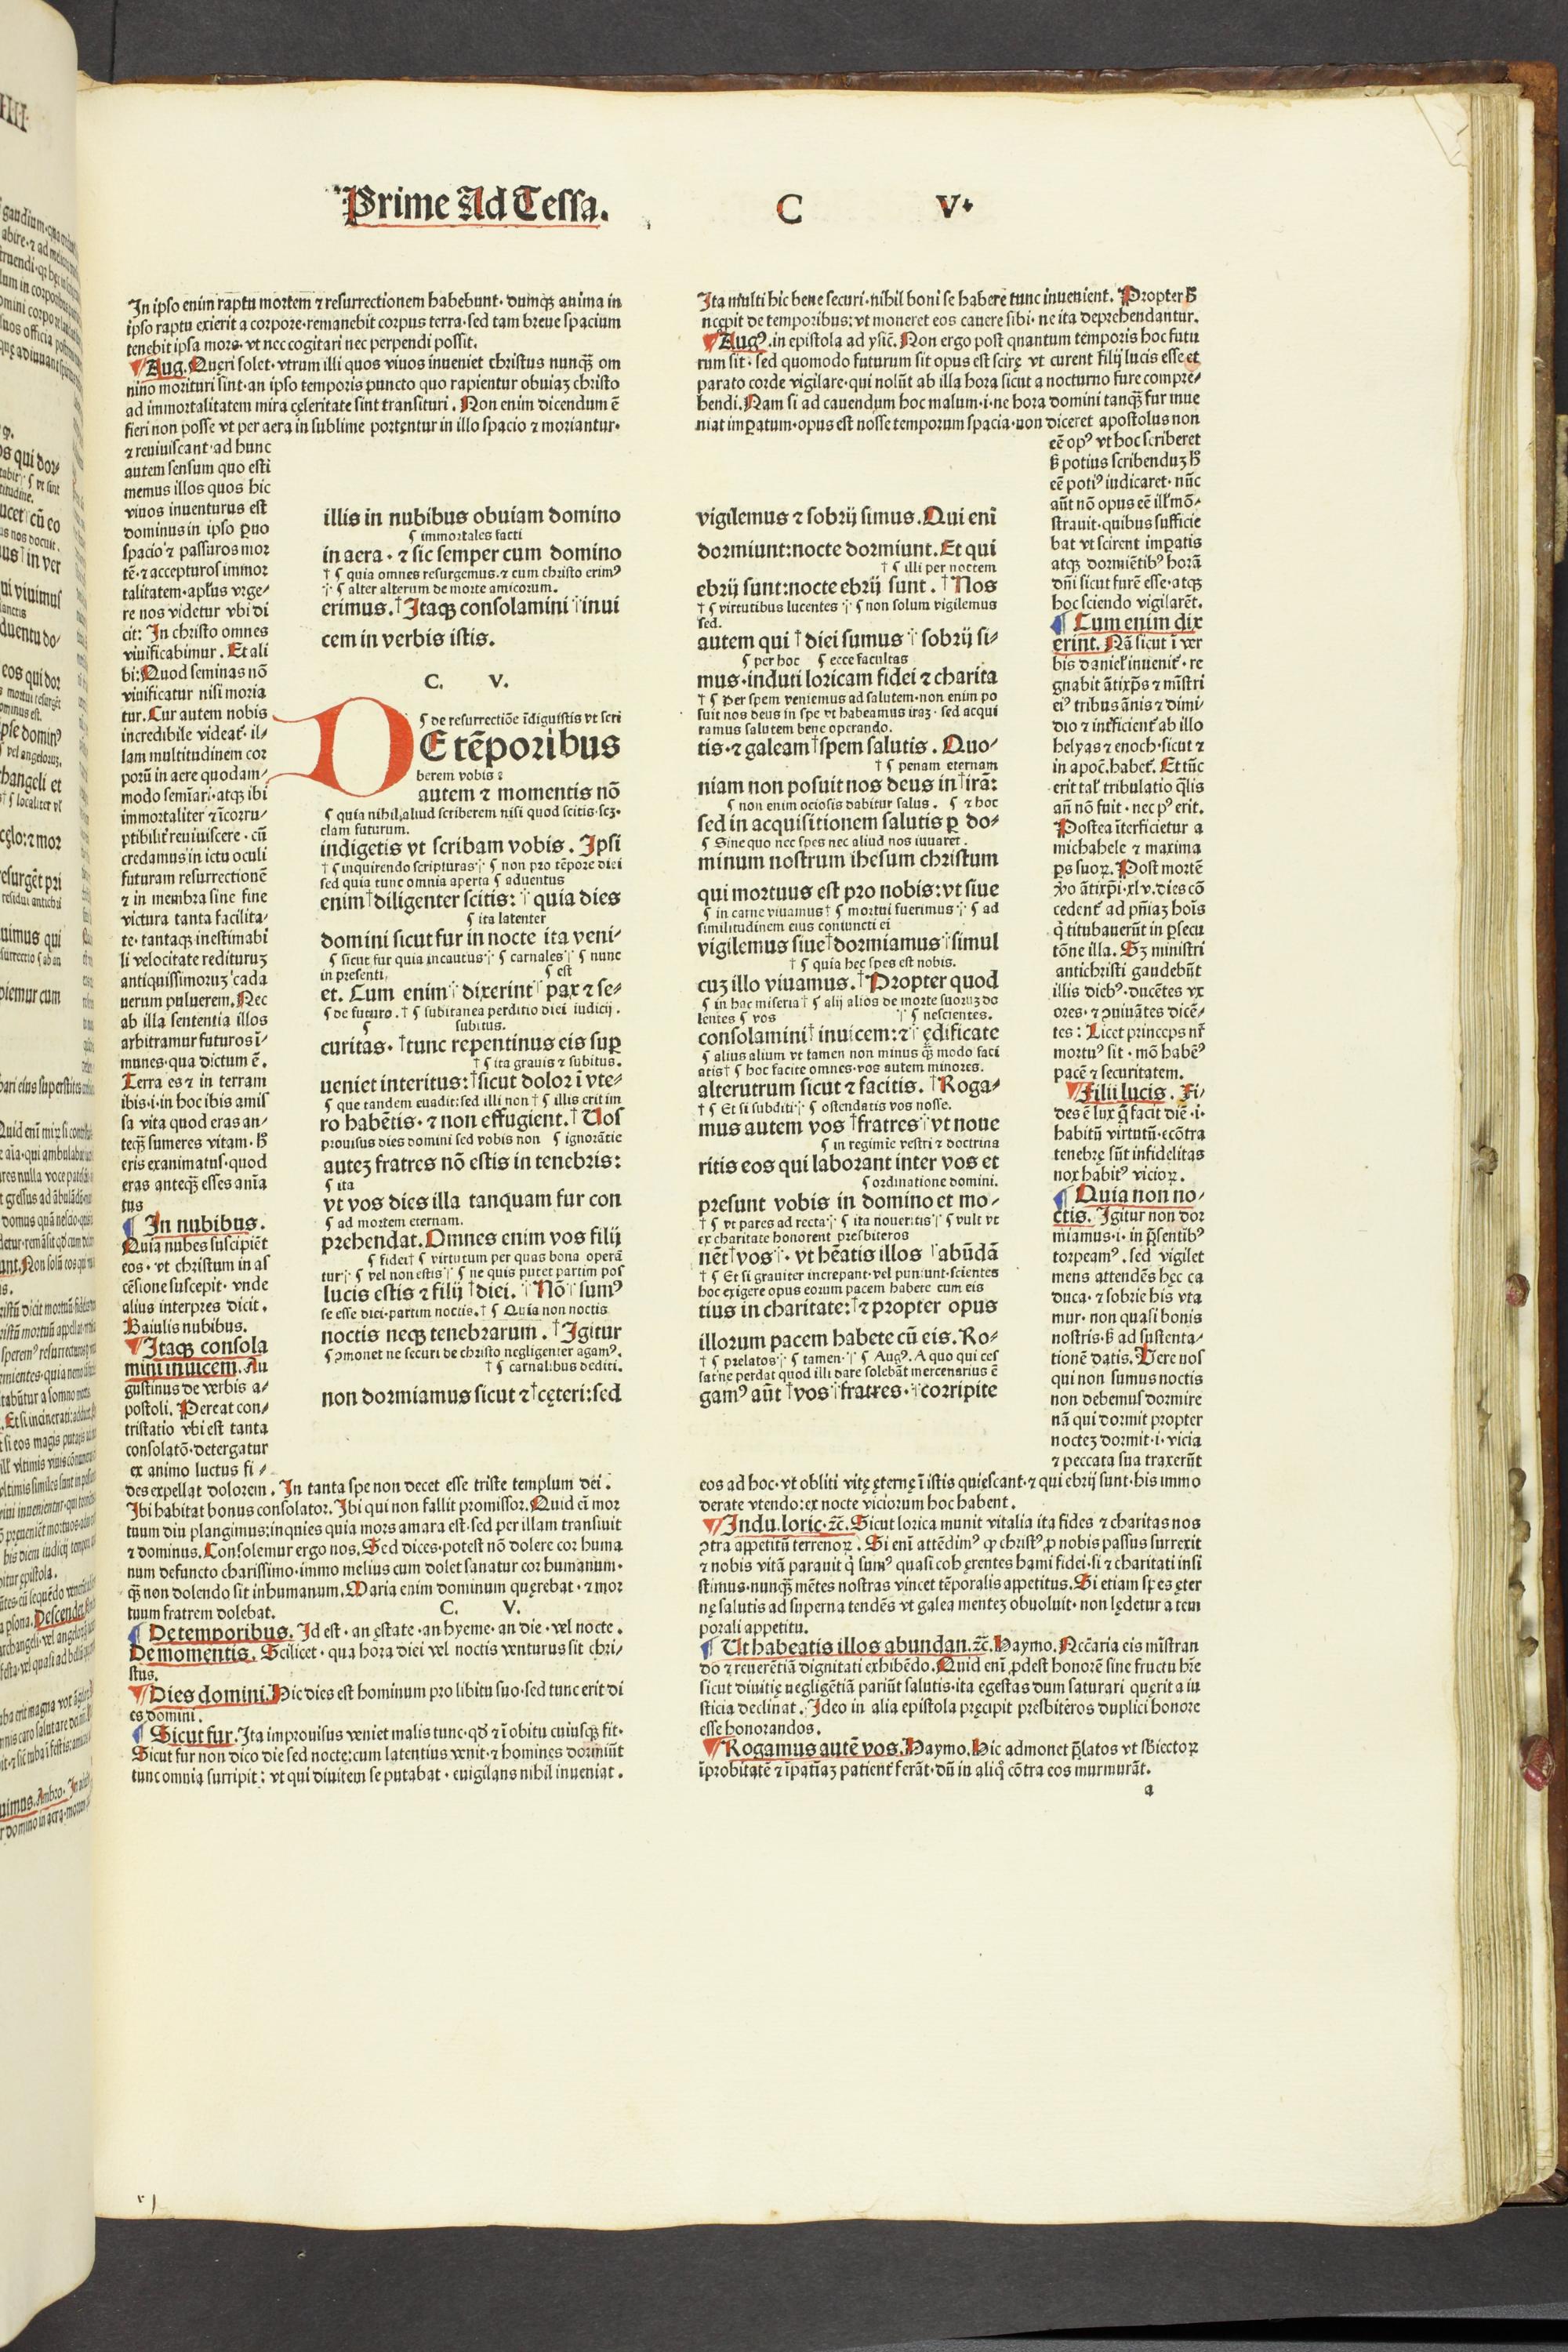 Prime Ad Tessa. C V.
In ipso enim raptu mortem ⁊ resurrectionem habebunt· dumqꝫ anima in
ipso raptu exierit a corpore·remanebit corpus terra·sed tam breue spacium
tenebit ipsa mora· vt nec cogitari nec perpendi possit.
Aug. Queri solet·vtrum illi quos viuos inueniet christus nunqꝫ om
nino morituri sint·an ipso temporis puncto quo rapientur obuiaꝫ christo
ad immortalitatem mira cęleritate sint transituri. Non enim dicendum ē
fieri non posse vt per aera in sublime portentur in illo spacio ⁊ moriantur·
⁊ reuiuiscant·ad hunc
autem sensum quo esti
memus illos quos hic
viuos inuenturus est
dominus in ipso ꝑuo
spacio ⁊ passuros mor
tē·⁊ accepturos immor
talitatem·aplus vrge-
re nos videtur vbi di
cit: In christo omnes
viuificabimur. Et ali
bi: Quod seminas nō
viuificatur nisi moria
tur. Cur autem nobis
incredibile videat·il-
lam multitudinem cor
porū in aere quodam-
modo semīari·atqꝫ ibi
immortaliter ⁊ īcorru-
ptibilit reuiuiscere·cū
credamus in ictu oculi
futuram resurrectionē
⁊ in membra sine fine
victura tanta facilita-
te·tantaqꝫ inestimabi
li velocitate redituruꝫ
antiquissimoruꝫ cada
uerum puluerem. Nec
ab illa sententia illos
arbitramur futuros ī-
munes·qua dictum ē.
Terra es ⁊ in terram
ibis·i·in hoc ibis amis
sa vita quod eras an-
teqꝫ sumeres vitam·h̄
eris exanimatus·quod
eras anteqꝫ esses anīa
tus
In nubibus.
Quia nubes suscipiēt
eos·vt christum in as
cēsione suscepit·vnde
alius interpres dicit.
Baiulis nubibus.
Itaqꝫ consola
mini inuicem. Au
gustinus de verbis a-
postoli. Pereat con-
tristatio vbi est tanta
consolatō·detergatur
ex animo luctus fi-
des expellat dolorem. In tanta spe non decet esse triste templum dei.
Ibi habitat bonus consolator. Ibi qui non fallit promissor. Quid eī mor
tuum diu plangimus:inquies quia mors amara est·sed per illam transiuit
⁊ dominus. Consolemur ergo nos. Sed dices·potest nō dolere cor huma
num defuncto charissimo·immo melius cum dolet sanatur cor humanum·
qꝫ non dolendo sit inhumanum. Maria enim dominum quęrebat·⁊ mor
tuum fratrem dolebat.
C. V.
De temporibus. Id est·an ęstate·an hyeme·an die·vel nocte.
De momentis. Scilicet·qua hora diei vel noctis venturus sit chri-
stus.
Dies domini. Hic dies est hominum pro libitu suo·sed tunc erit di
es domini.
Sicut fur. Ita improuisus veniet malis tunc·qđ ⁊ ī obitu cuiusqꝫ fit·
Sicut fur non dico die sed nocte:cum latentius venit·⁊ homines dormiūt
tunc omnia surripit: vt qui diuitem se putabat·euigilans nihil inueniat.
illis in nubibus obuiam domino
¶ immortales facti
in aera·⁊ sic semper cum domino
† ¶ quia omnes resurgemus·⁊ cum christo erimꝰ
¶ alter alterum de morte amicorum.
erimus. †Itaqꝫ consolamini inui
cem in verbis istis.
C. V.
¶ de resurrectiōe īdiguistis vt scri
DE tēporibus
berem vobis:
autem ⁊ momentis nō
¶ quia nihil aliud scriberem nisi quod scitis·scꝫ·
clam futurum.
indigetis vt scribam vobis. Ipsi
† ¶ inquirendo scripturas ¶ non pro tēpore diei
sed quia tunc omnia aperta ¶ aduentus
enim †diligenter scitis: quia dies
¶ ita latenter
domini sicut fur in nocte ita veni-
¶ sicut fur quia incautus ¶ carnales ¶ nunc
in presenti, ¶ est
et. Cum enim dixerint pax ⁊ se-
¶ de futuro. † ¶ subitanea perditio diei iudicij.
¶ subitus.
curitas·†tunc repentinus eis suꝑ
† ¶ ita grauis ⁊ subitus.
ueniet interitus: †sicut dolor ī vte-
¶ que tandem euadit:sed illi non † ¶ illis erit im
ro habētis·⁊ non effugient. †Uos
prouisus dies domini sed vobis non ¶ ignorātie
auteꝫ fratres nō estis in tenebris:
¶ ita
vt vos dies illa tanquam fur con
¶ ad mortem eternam.
prehendat. Omnes enim vos filij
¶ fidei † ¶ virtutum per quas bona operā
tur ¶ vel non estis ¶ ne quis putet partim pos
lucis estis ⁊ filij †diei. Nō sumꝰ
se esse diei·partim noctis. † ¶ Quia non noctis
noctis neqꝫ tenebrarum. †Igitur
¶ ꝯmonet ne securi de christo negligenter agamꝰ.
† ¶ carnalibus dediti.
non dormiamus sicut ⁊ †cęteri:sed
vigilemus ⁊ sobrij simus. Qui enī
dormiunt:nocte dormiunt. Et qui
† ¶ illi per noctem
ebrij sunt:nocte ebrij sunt. †Nos
† ¶ virtutibus lucentes ¶ non solum vigilemus
sed.
autem qui †diei sumus sobrij si-
¶ per hoc ¶ ecce facultas
mus·induti loricam fidei ⁊ charita
† ¶ Per spem veniemus ad salutem·non enim po
suit nos deus in spe vt habeamus iraꝫ·sed acqui
ramus salutem bene operando.
tis·⁊ galeam †spem salutis. Quo-
† ¶ penam eternam
niam non posuit nos deus in †irā:
¶ non enim ociosis dabitur salus. ¶ ⁊ hoc
sed in acquisitionem salutis ꝑ do-
¶ Sine quo nec spes nec aliud nos iuuaret.
minum nostrum ihesum christum
qui mortuus est pro nobis:vt siue
¶ in carne viuamus † ¶ mortui fuerimus ¶ ad
similitudinem eius coniuncti ei
vigilemus siue †dormiamus simul
† ¶ quia hec spes est nobis.
cuꝫ illo viuamus. †Propter quod
¶ in hac miseria † ¶ alij alios de morte suoruꝫ do
lentes ¶ vos ¶ nescientes.
consolamini †inuicem:⁊ ędificate
¶ alius alium vt tamen non minus qꝫ modo faci
atis † ¶ hoc facite omnes·vos autem minores.
alterutrum sicut ⁊ facitis. †Roga-
† ¶ Et si subditi ¶ ostendatis vos nosse.
mus autem vos †fratres vt noue
¶ in regimīe vestri ⁊ doctrina
ritis eos qui laborant inter vos et
¶ ordinatione domini.
presunt vobis in domino et mo-
† ¶ vt pares ad recta ¶ ita noueritis ¶ vult vt
ex charitate honorent presbiteros
nēt †vos·vt hēatis illos abūdā
† ¶ Et si grauiter increpant·vel puniunt·scientes
hoc exigere opus eorum pacem habere cum eis
tius in charitate: †⁊ propter opus
illorum pacem habete cū eis. Ro-
† ¶ prelatos ¶ tamen ¶ Augꝰ. A quo qui ces
sat ne perdat quod illi dare solebāt mercenarius ē
gamꝰ aūt †vos fratres·corripite
Ita multi hic bene securi·nihil boni se habere tunc inuenient. Propter h̄
incępit de temporibus:vt moneret eos cauere sibi·ne ita deprehendantur.
Augꝰ. in epistola ad ysic. Non ergo post quantum temporis hoc futu
rum sit·sed quomodo futurum sit opus est scire vt curent filij lucis esse et
parato corde vigilare·qui nolūt ab illa hora sicut a nocturno fure compre-
hendi. Nam si ad cauendum hoc malum·i·ne hora domini tanqꝫ fur inue
niat imꝑatum·opus est nosse temporum spacia·non diceret apostolus non
eē opꝰ vt hoc scriberet
sꝫ potius scribenduꝫ h̄
eē potiꝰ iudicaret·nūc
aūt nō opus eē ill mō-
strauit·quibus suffície
bat vt scirent imꝑatis
atqꝫ dormiētibꝰ horā
dn̄i sicut furē esse·atqꝫ
hoc sciendo vigilarēt.
Cum enim dix
erint. Nā sicut ī ver
bis daniel inuenit·re
gnabit ātixp̄s ⁊ mīstri
eiꝰ tribus ānis ⁊ dimi-
dio ⁊ int̄ficient ab illo
helyas ⁊ enoch·sicut ⁊
in apoc̄·habet. Et tūc
erit tal tribulatio qlis
an̄ nō fuit·nec pꝰ erit.
Postea īterficietur a
michahele ⁊ maxima
ps suoꝝ. Post mortē
v̊o ātixp̄i·xlv·dies cō
cedent ad pn̄iaꝫ hoīs
q̇ titubauerūt in ꝑsecu
tōne illa. Sꝫ ministri
antichristi gaudebūt
illis diebꝰ·ducētes vx
ores·⁊ ꝯuiuātes dicē-
tes: Licet princeps nr̄
mortuꝰ sit·mō habēꝰ
pacē ⁊ securitatem.
Filii lucis. Fi-
des ē lux q̄ facit diē·i·
habitū virtutū·ecōtra
tenebrę sūt infidelitas
nox habitꝰ vicioꝝ.
Quia non no-
ctis. Igitur non dor
miamus·i·in p̄sentibꝰ
torpeamꝰ·sed vigilet
mens attendēs hęc ca
duca·⁊ sobrie his vta
mur·non quasi bonis
nostris·sꝫ ad sustenta-
tionē datis. Vere nos
qui non sumus noctis
non debemus dormire
nā qui dormit propter
nocteꝫ dormit·i·vicia
⁊ peccata sua traxerūt
eos ad hoc·vt obliti vitę ęternę ī istis quiescant·⁊ qui ebrij sunt·his immo
derate vtendo:ex nocte viciorum hoc habent.
Indu.loric.⁊c̄. Sicut lorica munit vitalia ita fides ⁊ charitas nos
ꝯtra appetitū terrenoꝝ. Si enī attēdimꝰ ꝙ christꝰ ꝓ nobis passus surrexit
⁊ nobis vitā parauit q̇ sumꝰ quasi cohęrentes hami fidei·si ⁊ charitati insi
stimus·nunqꝫ mētes nostras vincet tēporalis appetitus. Si etiam spes ęter
nę salutis ad superna tendēs vt galea menteꝫ obuoluit·non lędetur a tem
porali appetitu.
Ut habeatis illos abundan.⁊c̄. Haymo. Nccāria eis mīstran
do ⁊ reuerētiā dignitati exhibēdo. Quid enī ꝓdest honorē sine fructu hr̄e
sicut diuitię negligētiā pariūt salutis·ita egestas dum saturari querit a iu
sticia declinat. Ideo in alia epistola pręcipit presbiteros duplici honore
esse honorandos.
Rogamus autē vos. Haymo. Hic admonet p̄latos vt sb̄iectoꝝ
īprobitatē ⁊ īpatīaꝫ patient ferāt·dū in aliq̇ cōtra eos murmurāt.
a